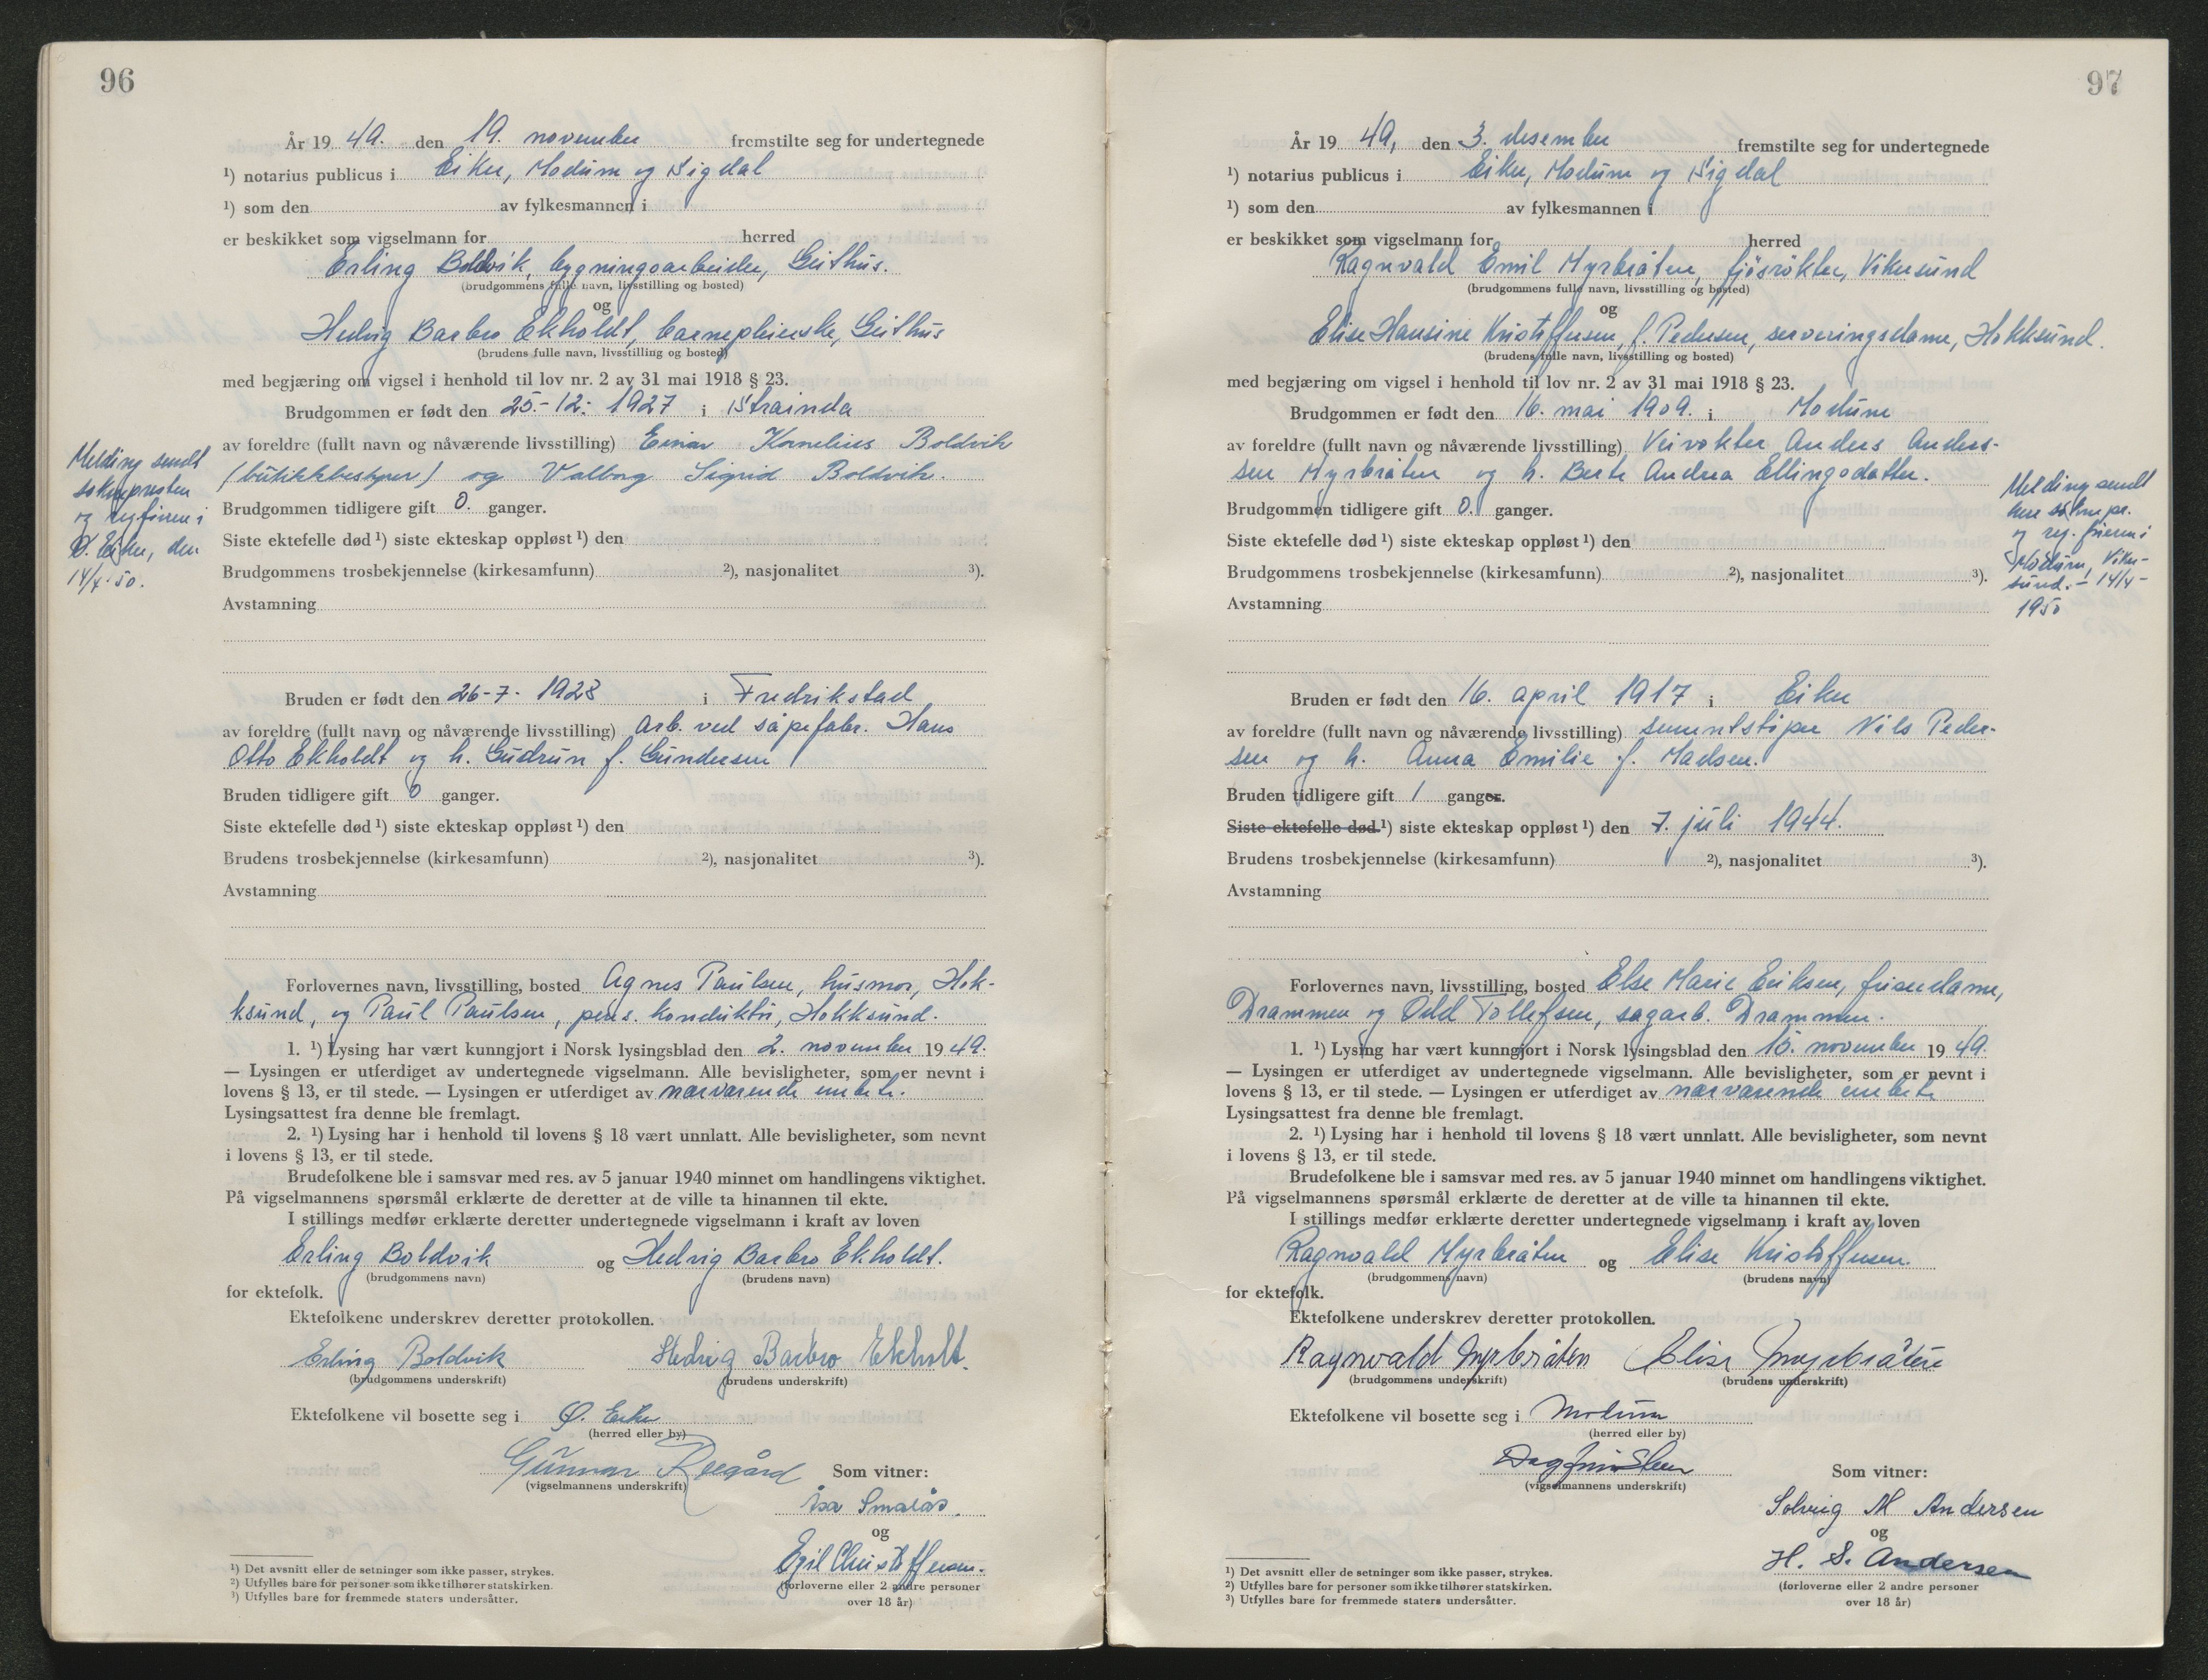 96
År 19 49. den 19. november fremstilte seg for undertegnede
¹) notarius publicus i Eiker, Modum og Sigdal
¹) som den av fylkesmannen i
er beskikket som vigselmann for herred
Erling Boldvik, bygningsarbeider, Geithus.
(brudgommens fulle navn, livsstilling og bosted)
og
Hedvig Barbro Ekholdt, barnepleierske, Geithus
(brudens fulle navn, livsstilling og bosted)
med begjæring om vigsel i henhold til lov nr. 2 av 31 mai 1918 § 23.
Brudgommen er født den 25.-12.- 1927 i Strainda
av foreldre (fullt navn og nåværende livsstilling) Einar Kornelius Boldvik
(butikkbestyrer) og Valborg Sigrid Boldvik.
Brudgommen tidligere gift 0. ganger.
Siste ektefelle død ¹) siste ekteskap oppløst ¹) den
Brudgommens trosbekjennelse (kirkesamfunn) ²), nasjonalitet ³).
Avstamning
Melding sendt
soknepresten
og reg.føreren i
Ø. Eiker, den
14/4-50.
Bruden er født den 26-7- 1928 i Fredrikstad
av foreldre (fullt navn og nåværende livsstilling) arb. ved såpefabr. Hans
Otto Ekholdt og h. Gudrun f. Gundersen
Bruden tidligere gift 0 ganger.
Siste ektefelle død ¹) siste ekteskap oppløst ¹) den
Brudens trosbekjennelse (kirkesamfunn) ²), nasjonalitet ³).
Avstamning
Forlovernes navn, livsstilling, bosted Agnes Paulsen, husmor, Hok-
ksund, og Paul Paulsen, pens. konduktør, Hokksund.
1. ¹) Lysing har vært kunngjort i Norsk lysingsblad den 2. november 19 49.
— Lysingen er utferdiget av undertegnede vigselmann. Alle bevisligheter, som er nevnt i
lovens § 13, er til stede. — Lysingen er utferdiget av nærværende embete.
Lysingsattest fra denne ble fremlagt.
2. ¹) Lysing har i henhold til lovens § 18 vært unnlatt. Alle bevisligheter, som nevnt
i lovens § 13, er til stede.
Brudefolkene ble i samsvar med res. av 5 januar 1940 minnet om handlingens viktighet.
På vigselmannens spørsmål erklærte de deretter at de ville ta hinannen til ekte.
I stillings medfør erklærte deretter undertegnede vigselmann i kraft av loven
Erling Boldvik og Hedvig Barbro Ekholdt.
(brudgommens navn) (brudens navn)
for ektefolk.
Ektefolkene underskrev deretter protokollen.
Erling Boldvik Hedvig Barbro Ekholt.
(brudgommens underskrift) (brudens underskrift)
Ektefolkene vil bosette seg i Ø. Eiker
(herred eller by)
Gunnar Reegård Som vitner:
(vigselmannens underskrift)
Åsa Smaaås.
og
Egil Christoffersen.
(forloverne eller 2 andre personer
over 18 år)
¹) Det avsnitt eller de setninger som ikke passer, strykes.
²) Utfylles bare for personer som ikke tilhører statskirken.
³) Utfylles bare for fremmede staters undersåtter.
97
År 19 49, den 3. desember fremstilte seg for undertegnede
¹) notarius publicus i Eiker, Modum og Sigdal
¹) som den av fylkesmannen i
er beskikket som vigselmann for herred
Ragnvald Emil Myrbråten, fjøsrøkter, Vikersund
(brudgommens fulle navn, livsstilling og bosted)
og
Elise Hansine Kristoffersen, f. Pedersen, serveringsdame, Hokksund.
(brudens fulle navn, livsstilling og bosted)
med begjæring om vigsel i henhold til lov nr. 2 av 31 mai 1918 § 23.
Brudgommen er født den 16. mai 1909. i Modum
av foreldre (fullt navn og nåværende livsstilling) Veivokter Anders Anders-
sen Myrbråten og h. Berte Andrea Ellingsdatter.
Brudgommen tidligere gift 0. ganger.
Siste ektefelle død ¹) siste ekteskap oppløst ¹) den
Brudgommens trosbekjennelse (kirkesamfunn) ²), nasjonalitet ³).
Avstamning
Melding sendt
herr soknepr.
og reg. føreren i
Modum, Viker-
sund. - 14/4-
1950
Bruden er født den 16. april 1917 i Eiker
av foreldre (fullt navn og nåværende livsstilling) sementstøper Nils Peder-
sen og h. Anna Emilie f. Madsen.
Bruden tidligere gift 1 ganger.
Siste ektefelle død ¹) siste ekteskap oppløst ¹) den 7. juli 1944.
Brudens trosbekjennelse (kirkesamfunn) ²), nasjonalitet ³).
Avstamning
Forlovernes navn, livsstilling, bosted Else Marie Eriksen, frisørdame,
Drammen og Odd Tollefsen, sagarb. Drammen.
1. ¹) Lysing har vært kunngjort i Norsk lysingsblad den 15. november 19 49.
— Lysingen er utferdiget av undertegnede vigselmann. Alle bevisligheter, som er nevnt i
lovens § 13, er til stede. — Lysingen er utferdiget av nærværende embete
Lysingsattest fra denne ble fremlagt.
2. ¹) Lysing har i henhold til lovens § 18 vært unnlatt. Alle bevisligheter, som nevnt
i lovens § 13, er til stede.
Brudefolkene ble i samsvar med res. av 5 januar 1940 minnet om handlingens viktighet.
På vigselmannens spørsmål erklærte de deretter at de ville ta hinannen til ekte.
I stillings medfør erklærte deretter undertegnede vigselmann i kraft av loven
Ragnvald Myrbråten og Elise Kristoffersen.
(brudgommens navn) (brudens navn)
for ektefolk.
Ektefolkene underskrev deretter protokollen.
Ragnvald Myrbråten Elise Myrbråten
(brudgommens underskrift) (brudens underskrift)
Ektefolkene vil bosette seg i Modum
(herred eller by)
Dagfinn Steen Som vitner:
(vigselmannens underskrift)
Solveig M Andersen
og
H. S. Andersen
(forloverne eller 2 andre personer
over 18 år)
¹) Det avsnitt eller de setninger som ikke passer, strykes.
²) Utfylles bare for personer som ikke tilhører statskirken.
³) Utfylles bare for fremmede staters undersåtter.